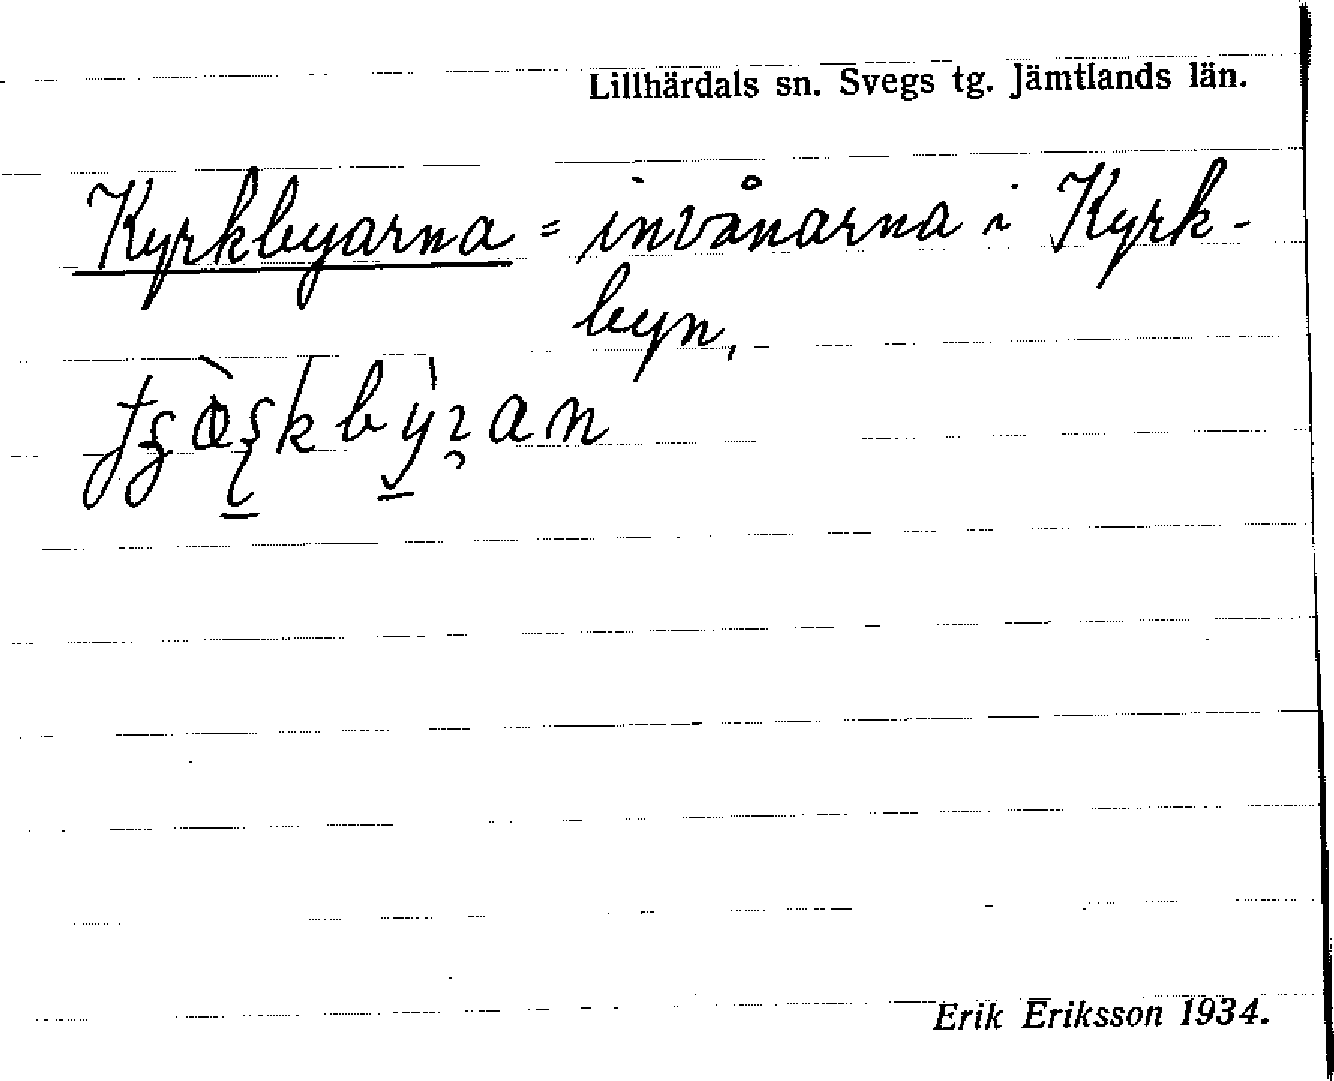 Lillhärdals sn. Svegs tg. Jämtlands län.
Kyrkbyarna = invånarna i Kyrk-
byn,
Erik Eriksson 1934.